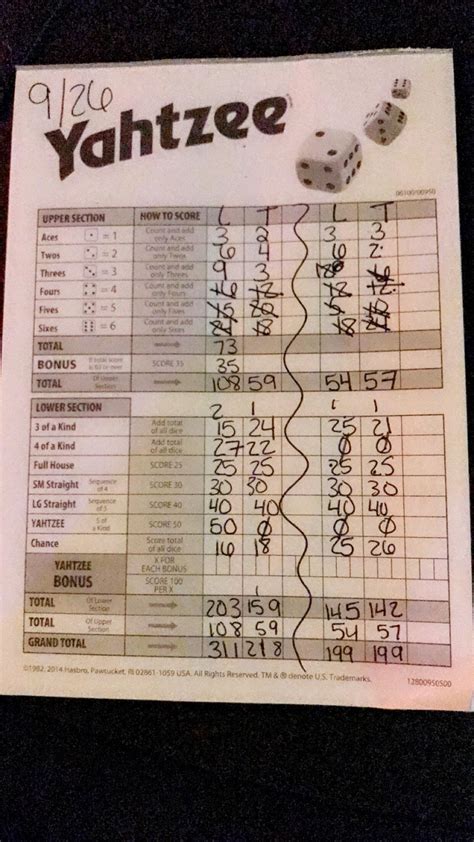 9/26
Yahtzee
00100950950
UPPER SECTION HOW TO SCORE L T L T
Aces = 1 Count and add only Aces 3 2 3 3
Twos = 2 Count and add only Twos 6 4 6 2
Threes = 3 Count and add only Threes 9 3
Fours = 4 Count and add only Fours
Fives = 5 Count and add only Fives
Sixes = 6 Count and add only Sixes
TOTAL 73
BONUS If total score is 63 or over SCORE 35 35
TOTAL Of Upper Section 108 59 54 57
LOWER SECTION 2 1 1 1
3 of a Kind Add total of all dice 15 24 25 21
4 of a Kind Add total of all dice 27 22 0 0
Full House SCORE 25 25 25 25 25
SM Straight Sequence of 4 SCORE 30 30 30 30 30
LG Straight Sequence of 5 SCORE 40 40 40 40 40
YAHTZEE 5 of a Kind SCORE 50 50 0 0 0
Chance Score total of all dice 16 18 25 26
YAHTZEE BONUS X FOR EACH BONUS
SCORE 100 PER X
TOTAL Of Lower Section 203 159 145 142
TOTAL Of Upper Section 108 59 54 57
GRAND TOTAL 311 218 199 199
©1982, 2014 Hasbro, Pawtucket, RI 02861-1059 USA. All Rights Reserved. TM & ® denote U.S. Trademarks.
12800950500